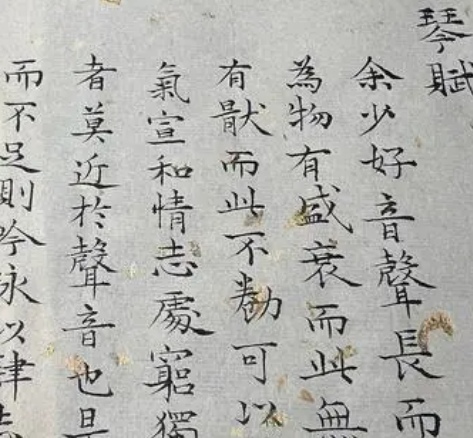 琴賦
余少好音聲長而
為物有盛衰而此無
有猒而此不勌可以
氣宣和情志處窮獨
者莫近於聲音也是
而不足則吟詠以肆